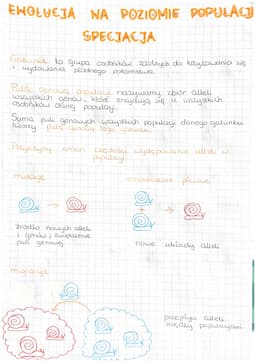 EWOLUCJA NA POZIOMIE POPULACJI
SPECJACJA
Gatunek to grupa osobników zdolnych do krzyżowania się
i wydawania płodnego potomstwa.
Pulą genową populacji nazywamy zbiór alleli
wszystkich genów, które znajdują się u wszystkich
osobników danej populacji.
Suma puli genowych wszystkich populacji danego gatunku
tworzy pulę genową tego gatunku.
Przyczyny zmian częstości występowania alleli w
populacji
mutacje
rozmnażanie płciowe
źródło nowych alleli
i genów, zwiększenie
puli genowej
nowe układy alleli
migracje
przepływ alleli
między populacjami